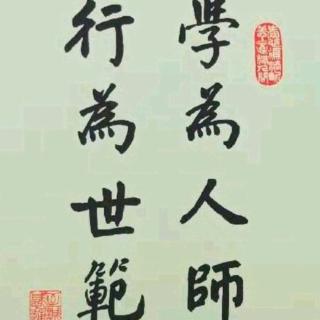 學為人師
行為世範